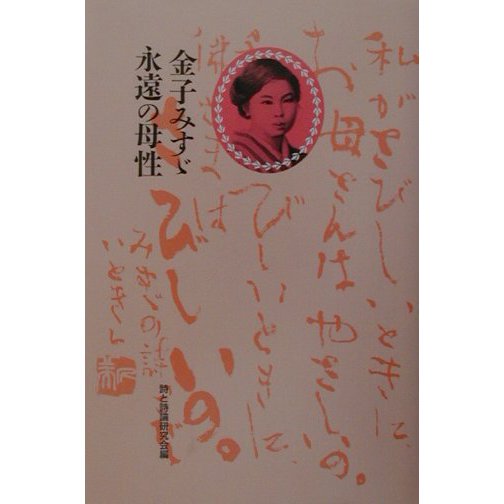 金子みすゞ
永遠の母性
私がさびしいときに、
お母さんはやさしいの。
びしいときに、
びしいの。
みすゞの詩
いとき
詩と詩論研究会編